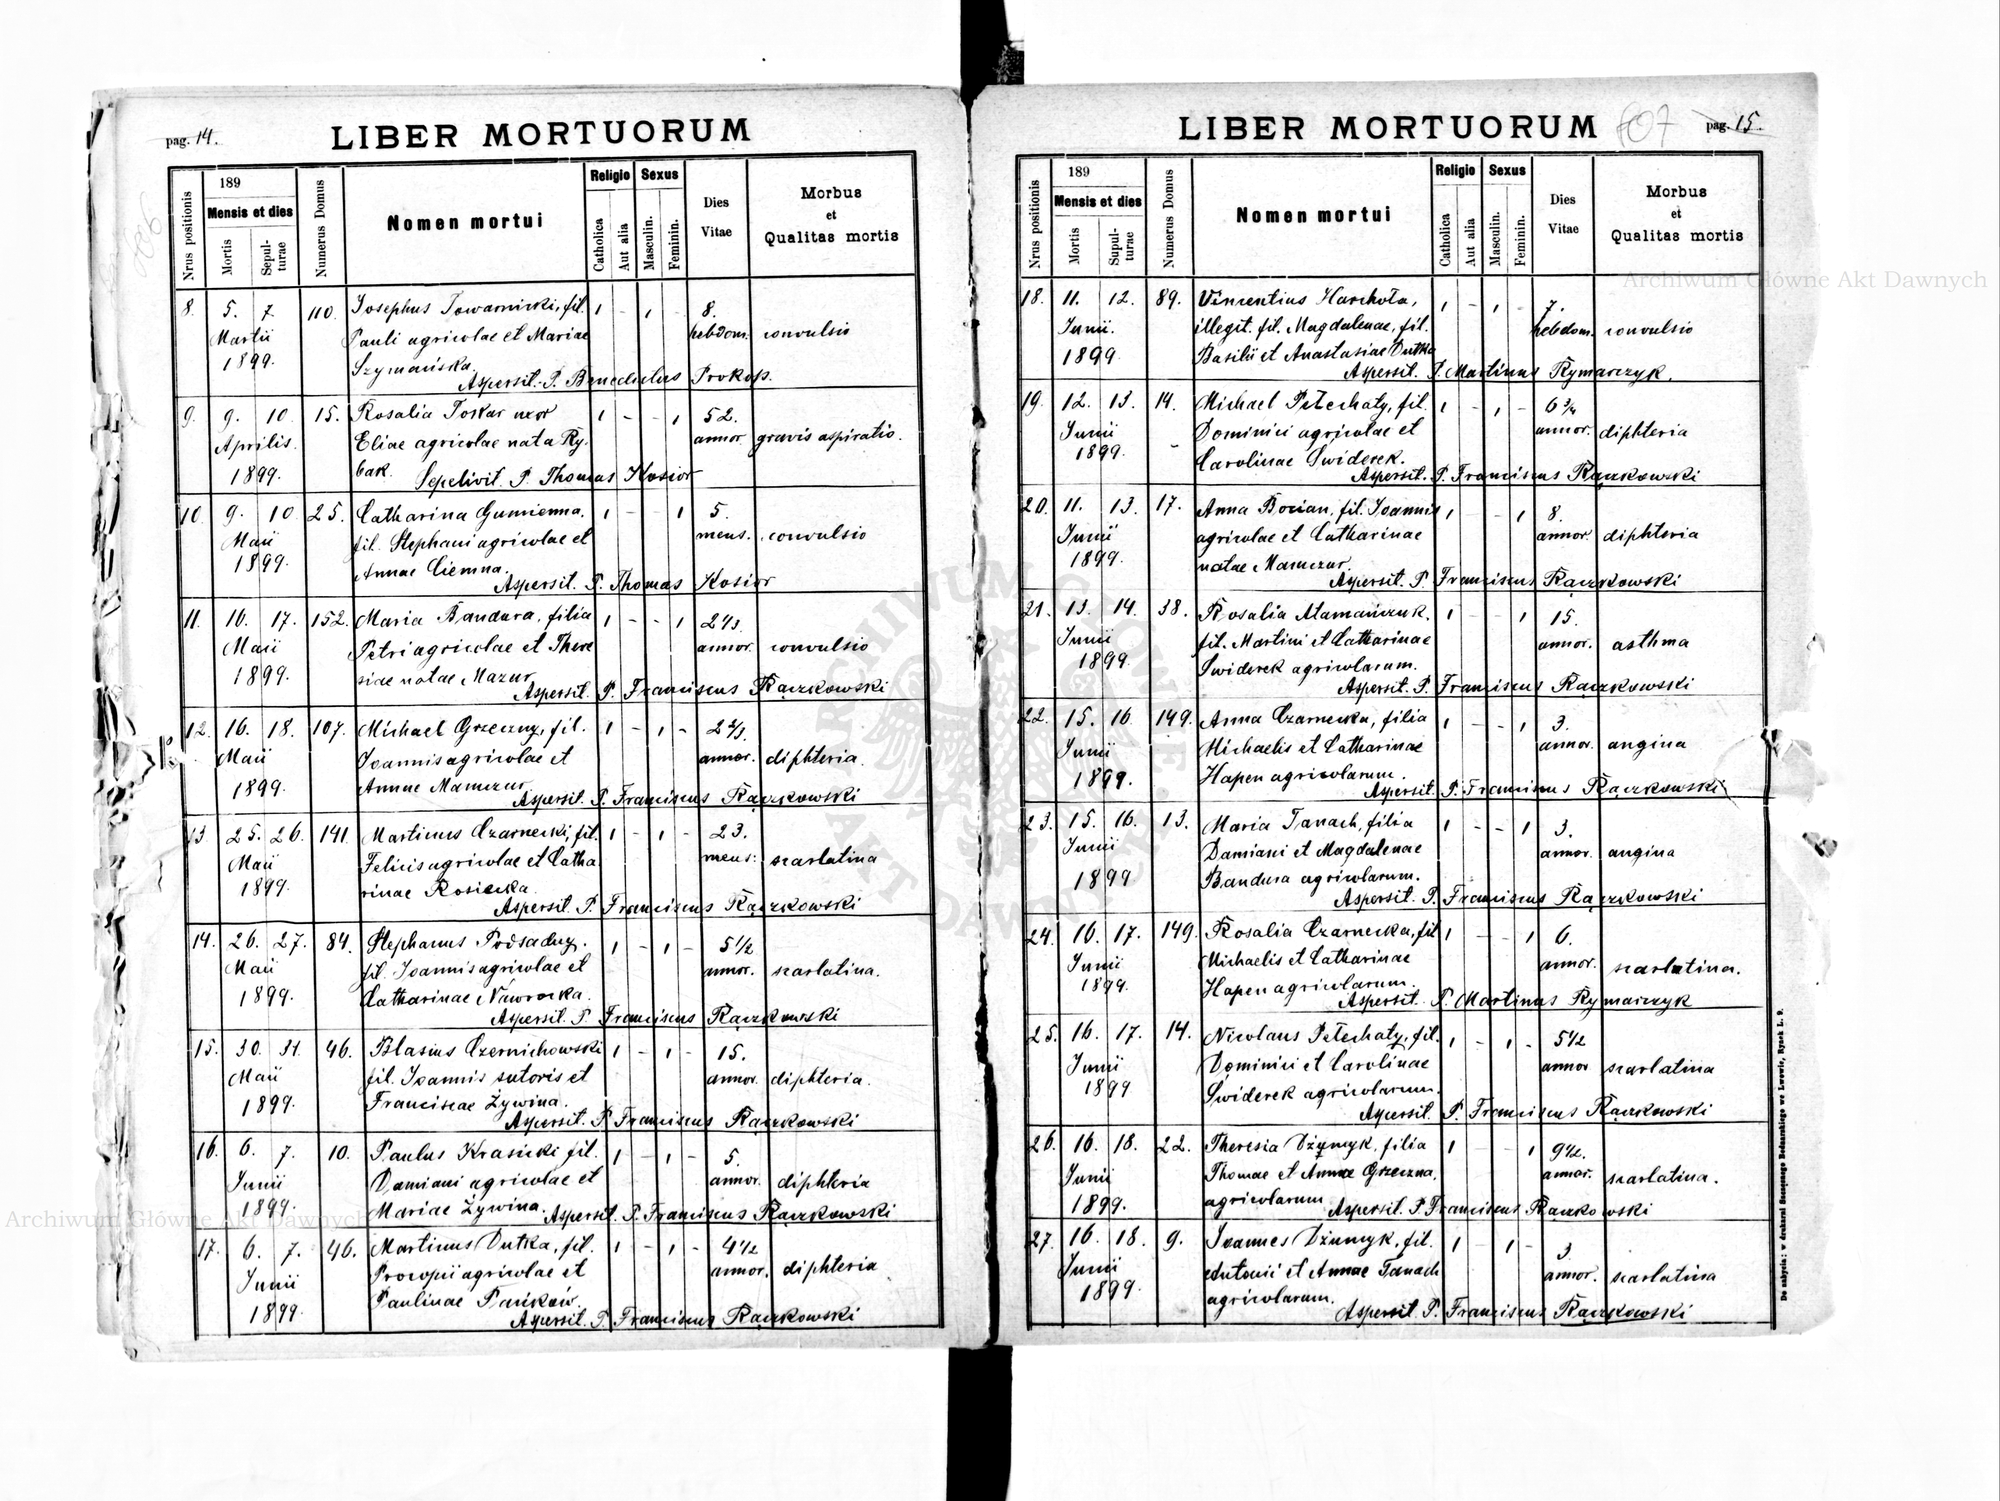 pag. 14.
LIBER MORTUORUM
Nrus positionis
189
Mensis et dies
Mortis
Sepul-
turae
Numerus Domus
Nomen mortui
Religio
Catholica
Aut alia
Sexus
Masculin.
Feminin.
Dies
Vitae
Morbus
et
Qualitas mortis
8. 5. 7. 110. Josephus Towarnicki, fil. 1 - 1 8.
Martii Pauli agricolae et Mariae hebdom. convulsio
1899. Szymańska.
Aspersit. P. Benedictus Prokop.
9. 9. 10. 15. Rosalia Toskar uxor 1 - - 1 52.
Aprilis. Eliae agricolae nata Ry- annor gravis aspiratio.
1899. bak. Sepelivit. P. Thomas Kosior
10. 9. 10. 25. Catharina Gumienna. 1 - - 1 5.
Maii fil. Stephani agricolae et mens. convulsio
1899. Annae Ciemna.
Aspersit. P. Thomas Kosior
11. 16. 17. 152. Maria Bandura, filia 1 - - 1 2 1/3.
Maii Petri agricolae et There annor. convulsio
1899. siae natae Mazur
Aspersit. P. Franciscus Raczkowski
12. 16. 18. 107. Michael Grzeczny, fil. 1 - 1 - 2 2/3.
Maii Joannis agricolae et annor. diphteria.
1899. Annae Mamczur
Aspersit. P. Franciscus Raczkowski
13. 25. 26. 141. Martinus Czarnecki, fil. 1 - 1 - 23.
Maii Felicis agricolae et Catha mens: scarlatina
1899. rinae Rosiecka.
Aspersit. P. Franciscus Raczkowski
14. 26. 27. 84. Stephanus Podsadny. 1 - 1 - 5 1/2
Maii fil. Joannis agricolae et annor. scarlatina.
1899. Catharinae Nawrocka.
Aspersit. P. Franciscus Raczkowski
15. 30. 31. 46. Blasius Czernichowski 1 - 1 - 15.
Maii fil. Joannis sutoris et annor. diphteria.
1899. Franciscae Żywina.
Aspersit. P. Franciscus Raczkowski
16. 6. 7. 10. Paulus Krasicki fil. 1 - 1 - 5.
Junii Damiani agricolae et annor. diphteria
1899. Mariae Żywina. Aspersit. P. Franciscus Raczkowski
17. 6. 7. 46. Martinus Dutka, fil. 1 - 1 - 4 1/2
Junii Procopii agricolae et annor. diphteria
1899. Paulinae Pańków.
Aspersit. P. Franciscus Raczkowski
LIBER MORTUORUM
607
pag. 15.
Nrus positionis
189
Mensis et dies
Mortis
Supul-
turae
Numerus Domus
Nomen mortui
Religio
Catholica
Aut alia
Sexus
Masculin.
Feminin.
Dies
Vitae
Morbus
et
Qualitas mortis
18. 11. 12. 89. Vincentius Harchoła, 1 - 1 7.
Junii. illegit. fil. Magdalenae, fil. hebdom. convulsio
1899. Basilii et Anastasiae Dutka
Aspersit. P. Martinus Rymarczyk.
19. 12. 13. 14. Michael Pełechaty, fil. 1 - 1 - 6 3/4
Junii Dominici agricolae et annor. diphteria
1899. Carolinae Świderek.
Aspersit. P. Franciscus Raczkowski
20. 11. 13. 17. Anna Bocian, fil. Joannis 1 - - 1 8.
Junii agricolae et Catharinae annor. diphteria
1899. natae Mamczur.
Aspersit. P. Franciscus Raczkowski
21. 13. 14. 38. Rosalia Atamańczuk. 1 - - 1 15.
Junii fil. Martini et Catharinae annor. asthma
1899. Świderek agricolarum.
Aspersit. P. Franciscus Raczkowski
22. 15. 16. 149. Anna Czarnecka, filia 1 - - 1 3.
Junii Michaelis et Catharinae annor. angina
1899. Hapen agricolarum.
Aspersit. P. Franciscus Raczkowski
23. 15. 16. 13. Maria Tanach, filia 1 - - 1 3.
Junii Damiani et Magdalenae annor. angina
1899 Bandura agricolarum.
Aspersit. P. Franciscus Raczkowski
24. 16. 17. 149. Rosalia Czarnecka, fil 1 - - 1 6.
Junii Michaelis et Catharinae annor. scarlatina.
1899. Hapen agricolarum.
Aspersit. P. Martinus Rymarczyk
25. 16. 17. 14. Nicolaus Pełechaty, fil. 1 - 1 - 5 1/2
Junii Dominici et Carolinae annor scarlatina
1899 Świderek agricolarum.
Aspersit. P. Franciscus Raczkowski
26. 16. 18. 22. Theresia Dżumyk, filia 1 - 1 9 1/2.
Junii Thomae et Annae Grzeczna, annor. scarlatina.
1899. agricolarum. Aspersit. P. Franciscus Raczkowski
27. 16. 18. 9. Joannes Dżumyk, fil. 1 - 1 - 3
Junii Antonii et Annae Tanach annor. scarlatina
1899. agricolarum.
Aspersit P. Franciscus Raczkowski
De nabycia: w drukarni Szczęsnego Bednarskiego we Lwowie, Rynek L. 9.
Archiwum Główne Akt Dawnych
Archiwum Główne Akt Dawnych
ARCHIWUM GŁÓWNE AKT DAWNYCH